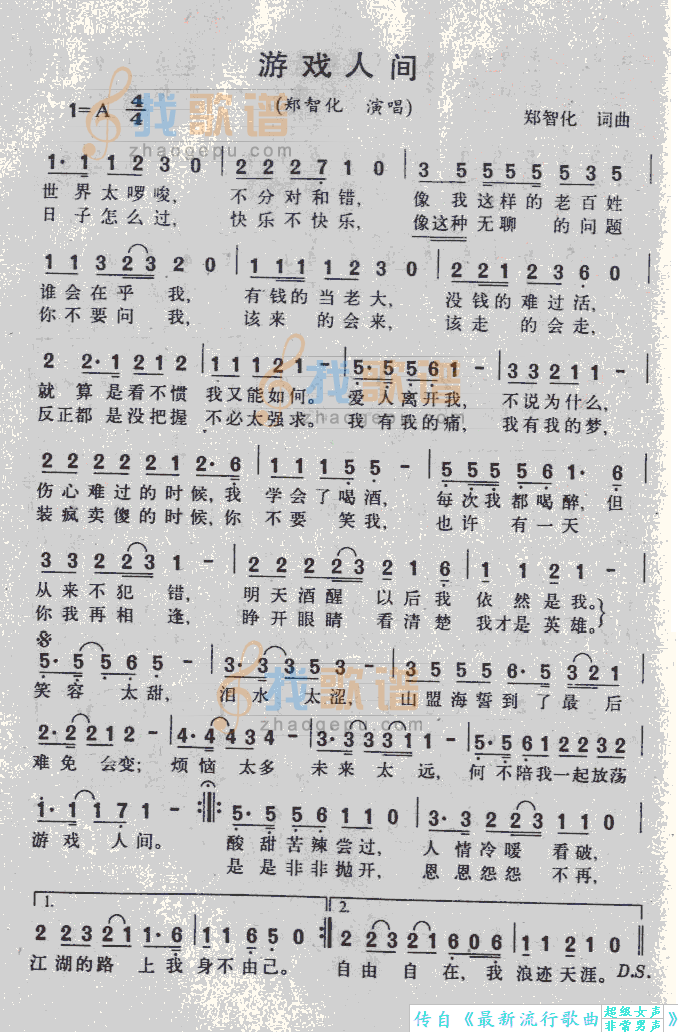 游戏人间
1=A 4/4
(郑智化 演唱)
郑智化 词曲
找歌谱
zhaogepu.com
1· 1 1 2 3 0 | 2 2 2 7 1 0 | 3 5 5 5 5 5 3 5 |
世界太啰唆， 不分对和错， 像我这样的老百姓
日子怎么过， 快乐不快乐， 像这种无聊 的问题
1 1 3 2 3 2 0 | 1 1 1 1 2 3 0 | 2 2 2 1 2 3 6 0 |
谁会在乎 我， 有钱的当老大， 没钱的难过活，
你不要问 我， 该来 的会来， 该走 的会走，
2 2· 1 2 1 2 | 1 1 1 2 1 - | 5· 5 5 6 1 - | 3 3 2 1 1 - |
就算是看不惯 我又能如何。 爱人离开我， 不说为什么，
反正都是没把握 不必太强求。 我有我的痛， 我有我的梦，
找歌谱
zhaogepu.com
2 2 2 2 2 1 2· 6 | 1 1 1 5 5 - | 5 5 5 5 6 1· 6 |
伤心难过的时候，我 学会了喝酒， 每次我都喝醉，但
装疯卖傻的时候，你 不要 笑我， 也许 有一天
3 3 2 2 3 1 - | 2 2 2 2 3 2 1 6 | 1 1 2 1 - |
从来不犯 错， 明天酒醒 以后我 依然是我。
你我再相 逢， 睁开眼睛 看清楚 我才是英雄。
5· 5 5 6 5 - | 3· 3 3 5 3 - | 3 5 5 5 6· 5 3 2 1 |
笑容 太甜， 泪水 太涩， 山盟海誓到了最后
找歌谱
zhaogepu.com
2· 2 2 1 2 - | 4· 4 4 3 4 - | 3· 3 3 3 1 1 - | 5· 5 6 1 2 2 3 2 |
难免 会变； 烦恼 太多 未来 太远， 何不陪我一起放荡
1· 1 1 7 1 - :‖: 5· 5 5 6 1 1 0 | 3· 3 2 2 3 1 1 0 |
游戏 人间。 酸甜苦辣尝过， 人情冷暖 看破，
是是非非抛开， 恩恩怨怨 不再，
1. 2.
2 2 3 2 1 1· 6 | 1 1 6 5 0 :‖ 2 2 3 2 1 6 0 6 | 1 1 2 1 0 |
江湖的路 上我 身不由己。 自由 自 在，我 浪迹天涯。 D.S.
传自《最新流行歌曲 超级女声 非常男声》